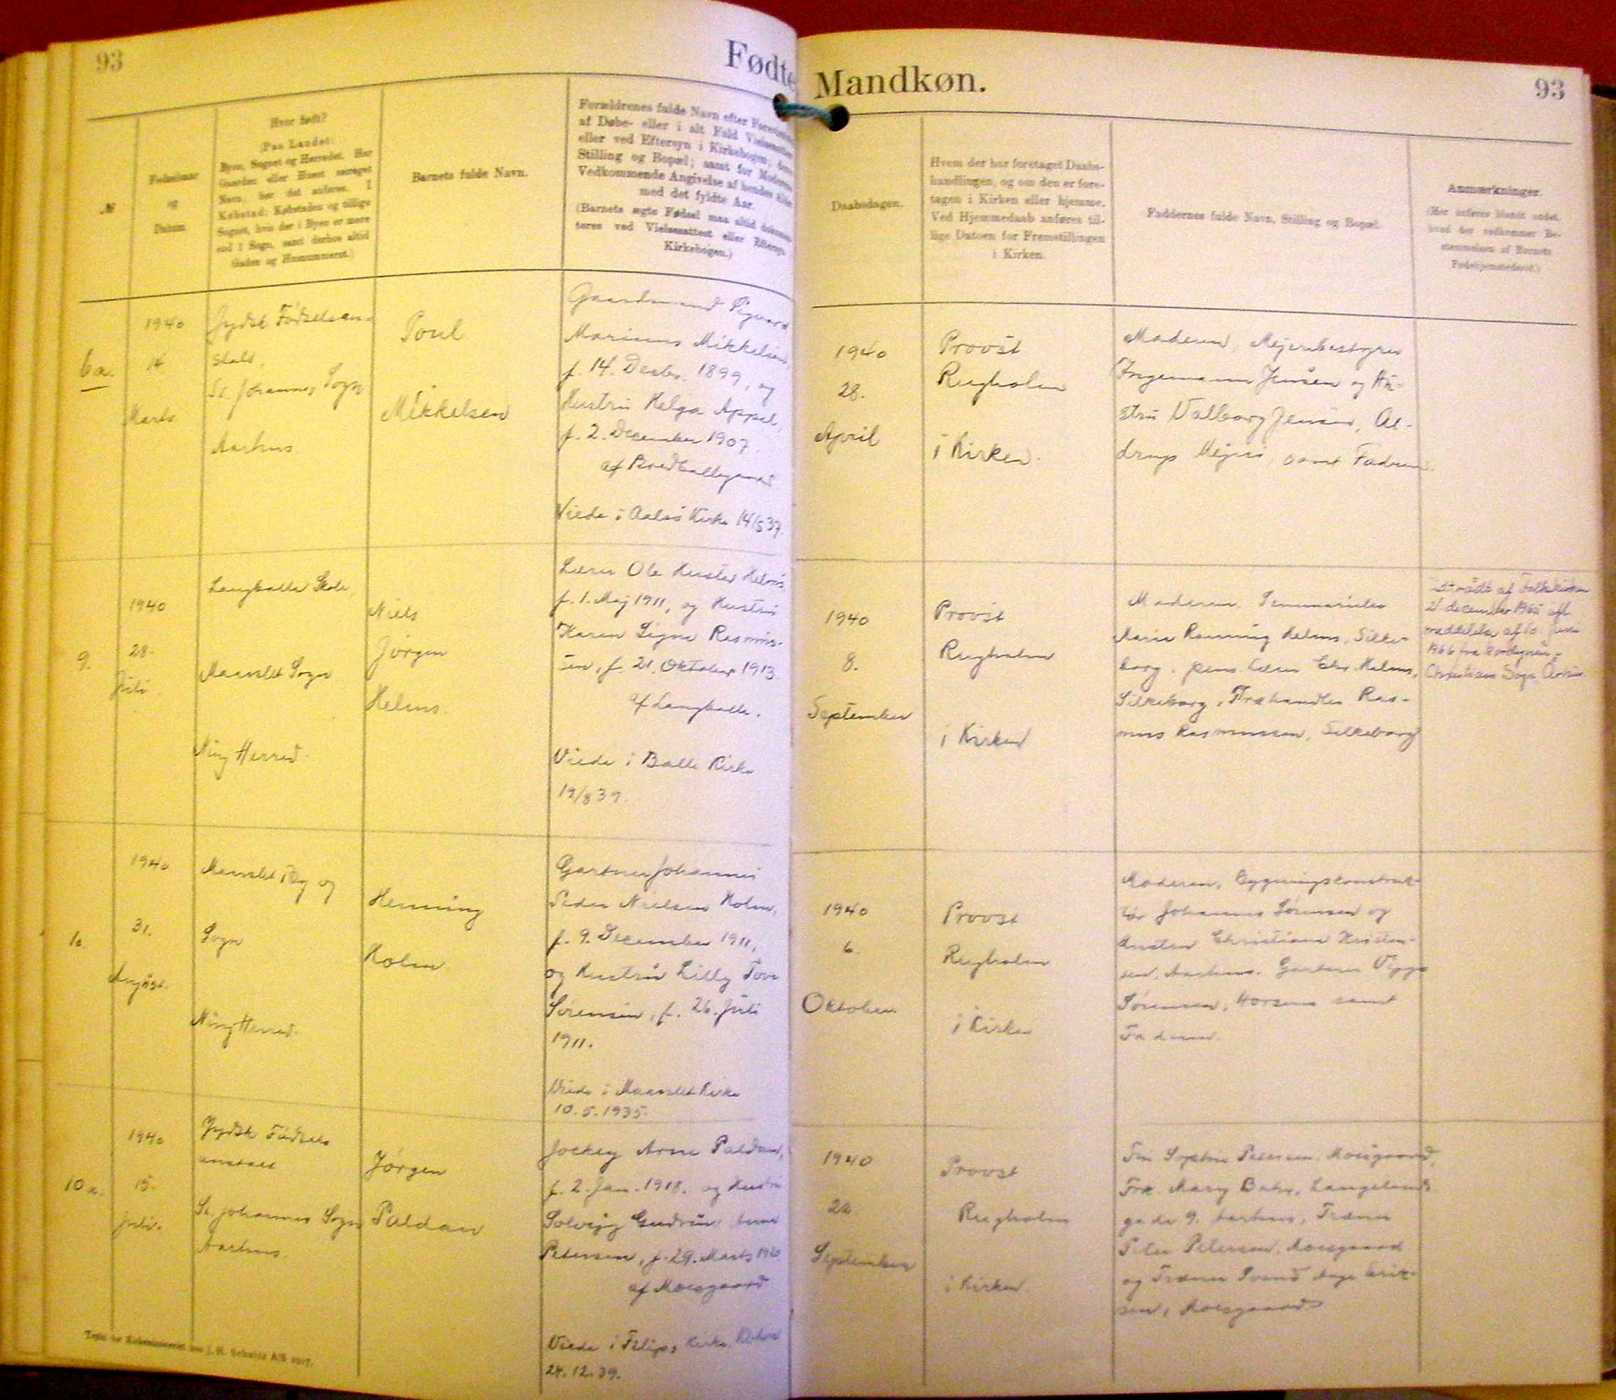 93
Fødte
Mandkøn.
93
№
Fødselsaar
og
Datum
Hvor født?
(Paa Landet:
Byen, Sognet og Herredet. Har
Gaarden eller Huset særeget
Navn, bør det anføres. I
Købstad: Købstaden og tillige
Sognet, hvis der i Byen er mere
end 1 Sogn, samt derhos altid
Gaden og Husnummeret.)
Barnets fulde Navn.
Forældrenes fulde Navn efter
af Døbe- eller i alt Fald
eller ved Eftersyn i Kirkebogen;
Stilling og Bopæl; samt for Moderens
Vedkommende Angivelse af hendes Alder
med det fyldte Aar.
(Barnets ægte Fødsel maa altid
teres ved Vielsesattest eller Eftersyn
Kirkebogen.)
Daabsdagen.
Hvem der har foretaget Daabs-
handlingen, og om den er fore-
tagen i Kirken eller hjemme.
Ved Hjemmedaab anføres til-
lige Datoen for Fremstillingen
i Kirken.
Faddernes fulde Navn, Stilling og Bopæl.
Anmærkninger.
(Her anføres blandt andet,
hvad der vedkommer Be-
stemmelsen af Barnets
Fødehjemsted.)
6a.
1940
14
Marts
Jydsk Fødselsan-
stalt,
St. Johannes Sogn
Aarhus
Poul
Mikkelsen
Gaardmand Sigvard
Marinus Mikkelsen,
f. 14. Decbr. 1899, og
Hustru Helga Appel,
f. 2. December 1907.
af Bredballegaard
Viede i Aalsø Kirke 14/5 37.
1940
28.
April
Provst
Rugholm
i Kirken.
Moderen, Mejeribestyrer
Ingemann Jensen og Hu-
stru Valborg Jensen,
drup Mejeri, samt Faderen.
9.
1940
28.
Juli.
Langballe Skole,
Maarslet Sogn
Ning Herred.
Niels
Jørgen
Helms.
Lærer Ole Helms
f. 1. Maj 1911, og Hustru
Karen Signe Rasmus-
sen, f. 21. Oktober 1913
af Langballe.
Viede i Balle Kirke
19/8 39.
1940
8.
September
Provst
Rugholm
i Kirken
Moderen,
Marie Rønning Helms, Silke-
borg, pens. Lærer Chr. Helms,
Silkeborg, Træhandler Ras-
mus Rasmussen, Silkeborg
Udtrådt af Folkekirken
21 december 1965 ifl.
meddelelse af 10. Juni
1966 fra
Christians Sogn Århus.
10.
1940
31.
August.
Maarslet By og
Sogn
Ning Herred.
Henning
Holm
Gartner Johannes
Peder Nielsen Holm,
f. 9. December 1911,
og Hustru Lilly Tove
Sørensen, f. 26. Juli
1911.
Viede i Maarslet Kirke
10.5.1935.
1940
6.
Oktober
Provst
Rugholm
i Kirken
Moderen, Bygningskonstruk-
tør Johannes Sørensen og
Hustru Christiane Kristen-
sen, Aarhus. Gartner Viggo
Sørensen, Horsens samt
Faderen.
10a.
1940
15.
Juli.
Jydsk Fødsels
anstalt
St. Johannes Sogn
Aarhus.
Jørgen
Paldan
Jockey Arne Paldan,
f. 2. Jan. 1918. og Hustru
Solvejg Gudrun
Petersen, f. 29. Marts 1920
af Moesgaard
Viede i Filips Kirke
24.12.39.
1940
22.
September
Provst
Rugholm
i Kirken.
Fru Sophie Petersen, Moesgaard,
Frk. Mary Langelands
gade 9. Aarhus, Træner
Peter Petersen, Moesgaard
og Træner Svend Aage Erik-
sen, Moesgaard